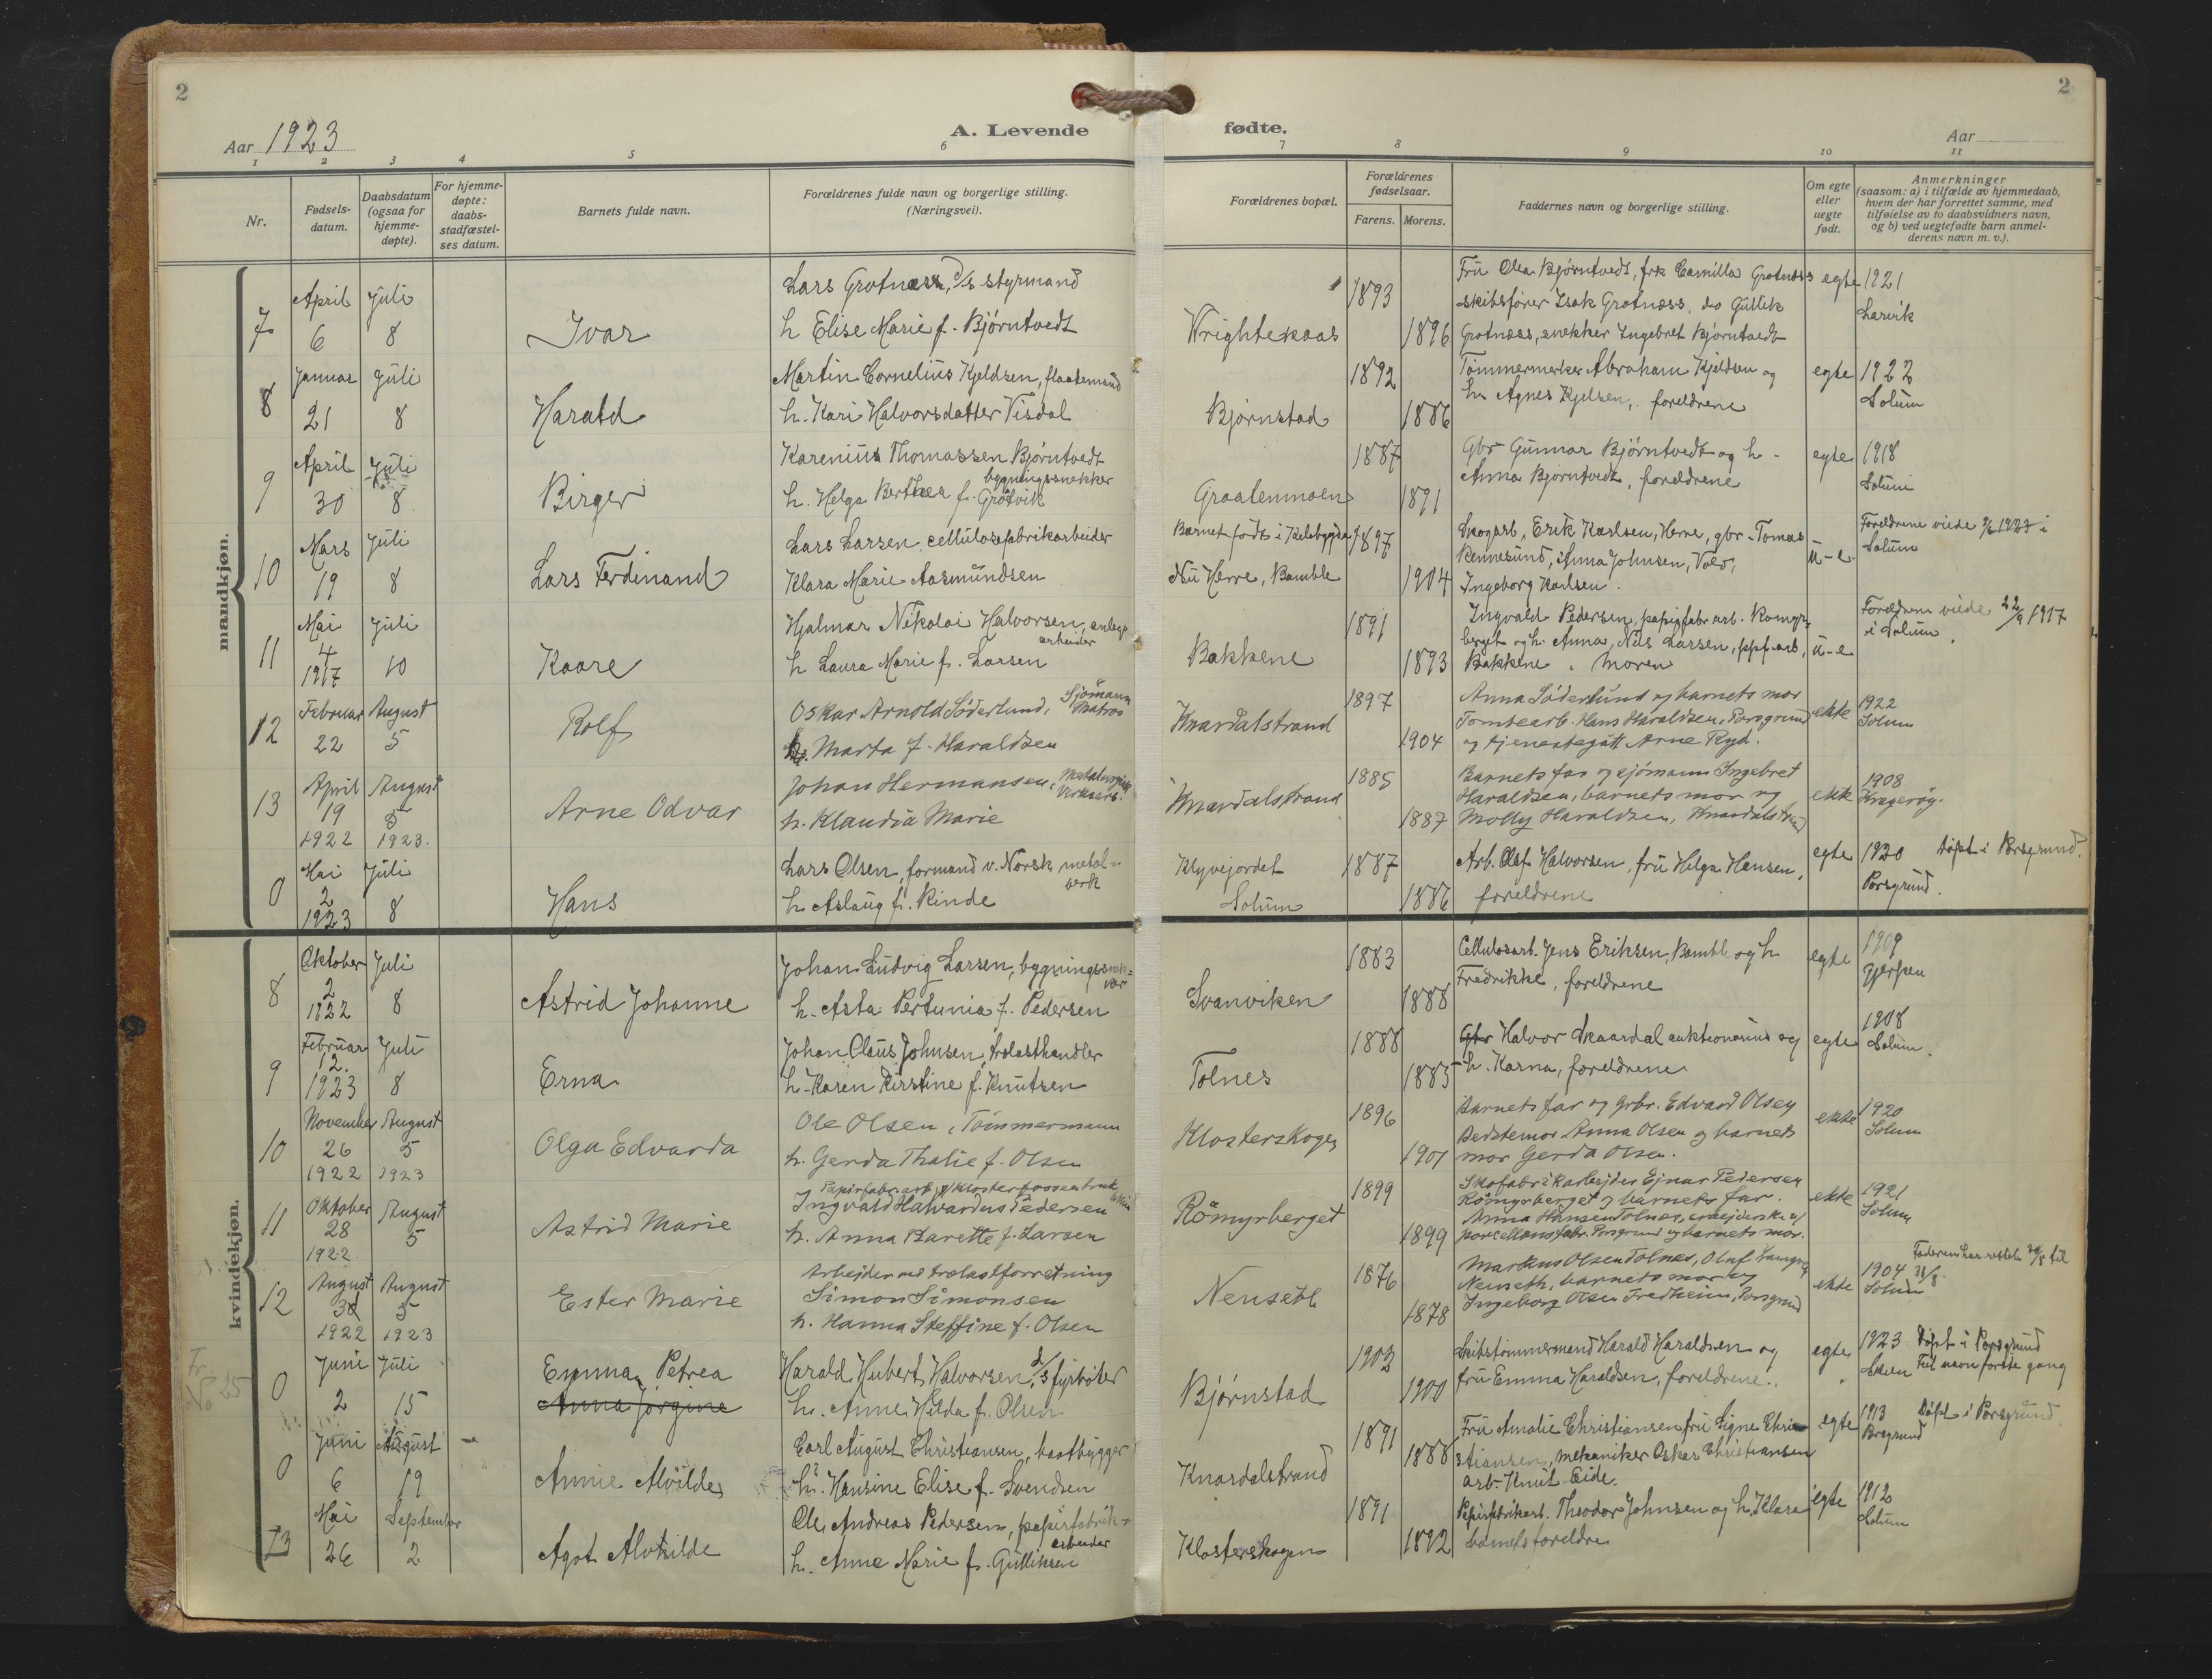 2
Aar 1923
A. Levende
1 2 3 4 5 6
Nr.
Fødsels-
datum.
Daabsdatum
(ogsaa for
hjemme-
døpte).
For hjemme-
døpte:
daabs-
stadfæstel-
ses datum.
Barnets fulde navn.
Forældrenes fulde navn og borgerlige stilling.
(Næringsvei).
mandkjøn.
7 April 6 Juli 8 Ivar
Lars Grotnæss, d/s styrmand
h Elise Marie f. Bjørntvedt
8 Januar 21 Juli 8 Harald
Martin Cornelius Kjeldsen, flaatemand
h. Kari Halvorsdatter Visdal
9 April 30 Juli 8 Birger
Karenius Thomassen Bjørntvedt
bygningssnekker
h. Helga Berthea f. Grotvik
10 Mars 19 Juli 8 Lars Ferdinand
Lars Larsen, cellulosefabrikarbeider
Klara Marie Aasmundsen
11 Mai 4 1917 Juli 10 Kaare
Hjalmar Nikolai Halvorsen, anlegs
arbeider
h Laura Marie f. Larsen
12 Februar 22 August 5 Rolf
Oskar Arnold Söderlund, Sjömann
Matros
h. Marta f. Haraldsen
13 April 19 1922 August 5 1923. Arne Odvar
Johan Hermansen,
h. Klaudia Marie
0 Mai 2 1923 Juli 8 Hans
Lars Olsen, formand v. Norsk metal-
verk
h Aslaug f. Rinde
kvindekjøn.
8 Oktober 2 1922 Juli 8 Astrid Johanne
Johan Ludvig Larsen, bygningssnek-
ker
h. Asta Pertunia f. Pedersen
9 Februar 12. 1923 Juli 8 Erna
Johan Claus Johnsen, trælasthandler
h. Karen Kirstine f. Knutsen
10 November 26 1922 August 5 1923 Olga Edvarda
Ole Olsen, Tömmermann
h. Gerda Thalie f. Olsen
11 Oktober 28 1922 August 5 Astrid Marie
Papirfabr.arb.
Ingvald Halvardus Pedersen
h. Anna Karette f. Larsen
12 August 30 1922 August 5 1923 Ester Marie
Arbejder ved trælastforretning
Simon Simonsen
h. Hanna Steffine f. Olsen
0 Juni 2 Juli 15 Emma Petrea
Anna Jørgine
Harald Hubert Halvorsen, d/s fyrbøter
h. Anne Hilda f. Olsen
0 Juni 6 August 19 Annie Alvilde
Carl August Christiansen, baatbygger
h. Hansine Elise f. Svendsen
13 Mai 26 September 2 Agot Alvhilde
Ole Andreas Pedersen, papirfabrik-
arbeider
h. Anne Marie f. Gulliksen
2
fødte.
Aar
7 8 9 10 11
Forældrenes bopæl.
Forældrenes
fødselsaar.
Farens. Morens.
Faddernes navn og borgerlige stilling.
Om egte
eller
uegte
født.
Anmerkninger
(saasom: a) i tilfælde av hjemmedaab,
hvem der har forrettet samme, med
tilføielse av to daabsvidners navn,
og b) ved uegtefødte barn anmel-
derens navn m. v.).
Wrightekaas 1893 1896
Fru Olea Bjørntvedt, frk Camilla Grotnæss egte 1921
skibsfører Isak Grotnæss, do Gullik Larvik
Grotnæss, snekker Ingebret Bjørntvedt
Bjørnstad 1892 1886
Tømmermerker Abraham Kjeldsen og egte 1922
h. Agnes Kjelsen, foreldrene Solum
Graatenmoen 1887 1891
Gbr Gunnar Bjørntvedt og h - egte 1918
Anna Bjørntvedt, foreldrene Solum
Barnet født i Eidsbygda 1897
nu Herre, Bamble 1904
Skogarb. Erik Karlsen, Herre, gbr. Tomas
Rennesund, Anna Johnsen, Vold, u-e
Ingeborg Karlsen.
Foreldrene viede 1923 i
Solum
Bakkene 1891 1893
Ingvald Pedersen, papirfabr arb. Römyr-
berget og h. Anna, Nils Larsen, ppf.arb, u-e
Bakkene, moren
Foreldrene viede 22/9 1917
i Solum.
Knardalstrand 1897 1904
Anna Söderlund og barnets mor
Tomtearb. Hans Haraldsen, Porsgrund ekte 1922
og tjenestegutt Arne Ryd. Solum
Knardalstrand 1885 1887
Barnets far og sjömann Ingebret
Haraldsen, barnets mor og ekte 1908
Molly Haraldsen, Knardalstrand Kragerög.
Klyvejordet
Solum 1887 1886
Arb. Olaf Halvorsen, fru Helga Hansen, egte 1920 døpt i Porsgrund.
foreldrene Porsgrund.
Svanviken 1883 1888
Cellulosarb. Jens Eriksen, Bamble og h egte 1909
Fredrikke, foreldrene Gjerpen
Tolnes 1888 1885
Gbr Halvor Skaardal auktionarius og egte 1908
h. Karna, foreldrene Solum.
Klosterskogen 1896 1901
Barnets far og Grbr. Edvard Olsen ekte 1920
Bedstemor Anna Olsen og barnets Solum
mor Gerda Olsen.
Römyrberget 1899 1899
Skofabrikarbejder Ejnar Pedersen
Römyrberget og barnets far. ekte 1921
Anna Hansen Tolnes, arbejderske v/ Solum
porcellensfabr. Porsgrund og barnets mor.
Nenseth 1876 1878
Markus Olsen Tolnes, Oluf
Nenseth, barnets mor og ekte 1904
Ingeborg Olsen Fredheim, Porsgrund Solum
Bjørnstad 1902 1900
Skibstømmermand Harald Haraldsen og egte 1923 Døpt i Porsgrund
fru Emma Haraldsen, foreldrene. Skien
Knardalstrand 1891 1888
Fru Amalie Christiansen fru Signe Chri- egte 1913 Døpt i Porsgrund
stiansen, mekaniker Oskar Christiansen
arb. Knut Eide.
Klosterskogen 1891 1892
Papirfabrikarb. Theodor Johnsen og h. Klara egte 1912
barnets foreldre Solum